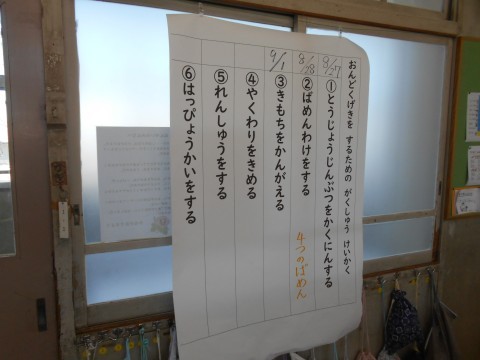 おんどくげきを するための がくしゅう けいかく
8/27 ①とうじょうじんぶつをかくにんする
8/28 ②ばめんわけをする 4つのばめん
9/1 ③きもちをかんがえる
④やくわりをきめる
⑤れんしゅうをする
⑥はっぴょうかいをする